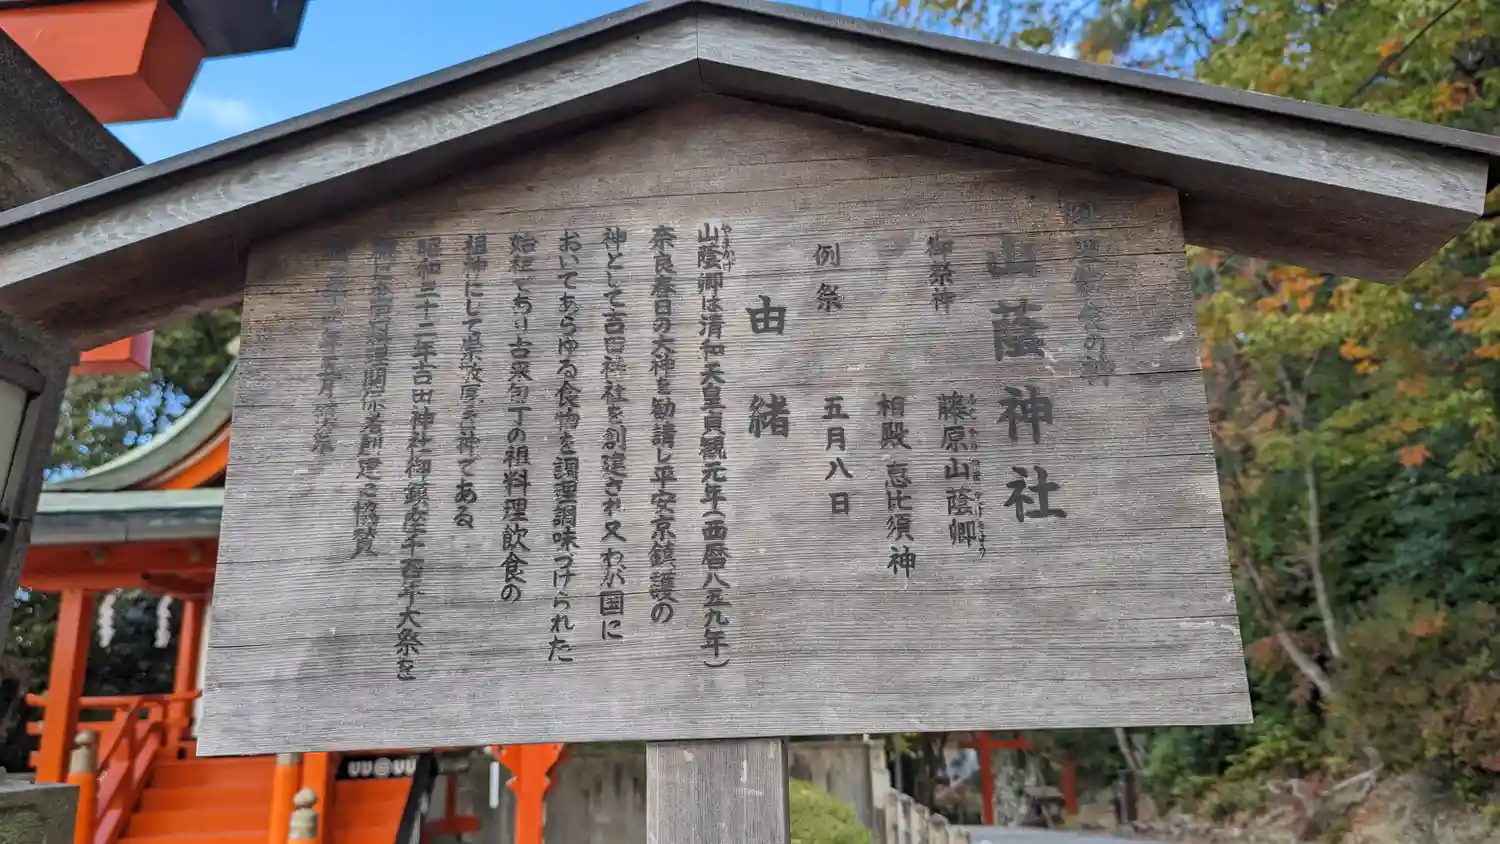 料理飲食の神
山蔭神社
御祭神 藤原山蔭卿
ふじわらやまかげきょう
相殿 恵比須神
例祭 五月八日
由緒
山蔭卿は清和天皇貞観元年(西暦八五九年)
やまかげ
奈良春日の大神を勧請し平安京鎮護の
神として吉田神社を創建され又わが国に
おいてあらゆる食物を調理調味づけられた
始祖であり古来包丁の祖料理飲食の
祖神にして崇敬厚き神である
昭和三十二年吉田神社御鎮座千百年大祭を
料理関係者創建に協賛
年五月
祭